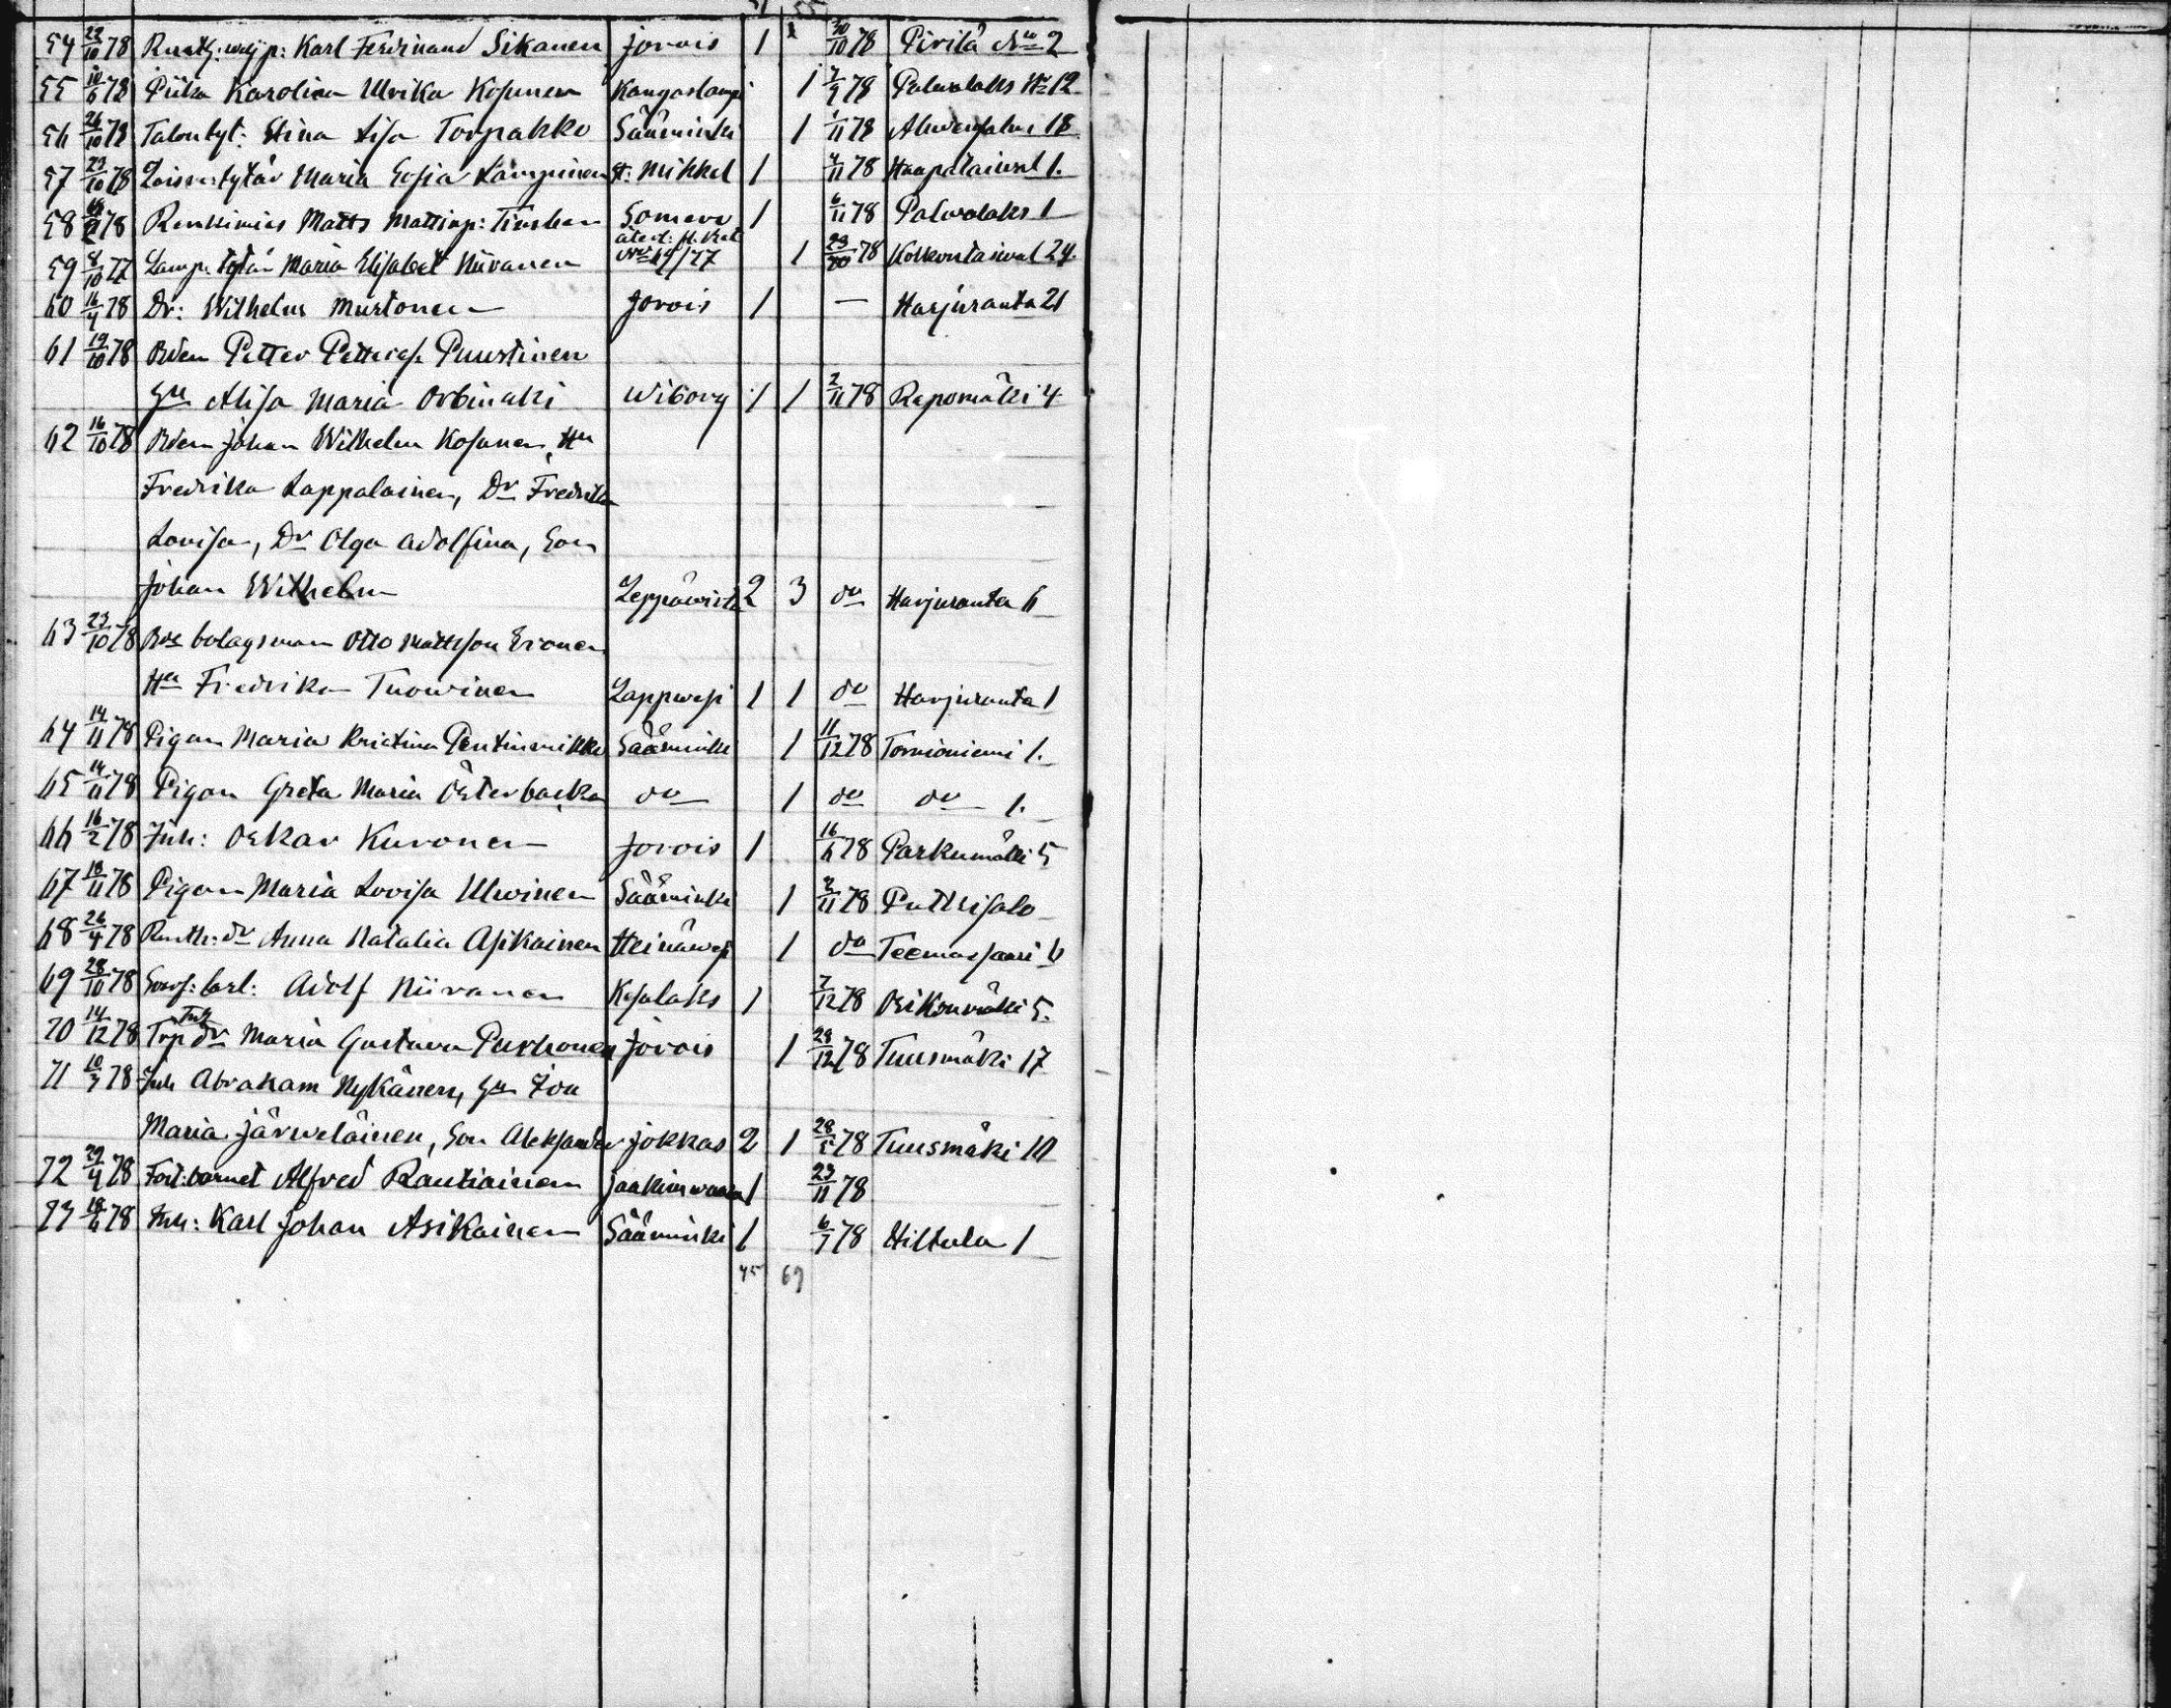 54 23/10 78 Karl Ferdinand Sikanen Jorois 1 30/10 78 Pirilä No 2
55 10/6 78 Piika Karolina Ulrika Kosunen Kangaslampi 1 7/9 78 12
56 26/10 78 Talon tyt: Stina Lisa Torpakko Sääminki 1 1/11 78 18
57 23/10 78 tytär Maria Sofia St: Mikkel 1 4/11 78 Haapataival 1.
58 78 Renkimies Matts Mattinp: Somero 1 6/11 78 1
59 8/10 77 Lamp. tytär Maria Elisabet Niiranen No 19/77 1 23/10 78 Kokkontaival 24.
60 16/4 78 Dr: Wilhelm Murtonen Jorois 1 — Harjuranta 21
61 19/10 78 Bden Petter Pettersn Puustinen
Hu Alisa Maria Orbinski Wiborg 1 1 2/11 78 Repomäki 4
62 16/10 78 Bden Johan Wilhelm Kosunen, Hu
Fredrika Lappalainen, Dr Fredrika
Lovisa, Dr Olga Adolfina, Son
Johan Wilhelm Leppävirta 2 3 do Harjuranta 6
63 23/10 78 bolagsman Otto Mattsson Eronen
Hu Fredrika Tuowinen Lappvesi 1 1 do Harjuranta 1
64 14/11 78 Pigan Maria Kristina Sääminki 1 11/12 78 Tornioniemi 1.
65 14/11 78 Pigan Greta Maria Österbacka do 1 do do 1.
66 16/2 78 Inh: Oskar Kuronen Jorois 1 16/6 78 Parkumäki 5
67 18/11 78 Pigan Maria Lovisa Ulwinen Sääminki 1 2/11 78 Putkisalo
68 26/4 78 dr Anna Natalia Asikainen Heinäwesi 1 do Teemassaari 6
69 28/10 78 Adolf Niiranen Kesälaks 1 7/12 78 Osikonmäki 5.
70 14/12 78 Trp Inh dr Maria Gustava Purhonen Jorois 1 29/12 78 Tuusmäki 17
71 10/3 78 Inh Abraham Nykänen, Hu
Maria Järweläinen, Son Aleksander Jokkas 2 1 28/5 78 Tuusmäki 10
72 29/4 78 Fost: barnet Alfred Rautiainen Jaakimwaara 1 23/11 78
73 18/6 78 Inh: Karl Johan Asikainen Sääminki 1 6/7 78 Hiltula 1
45 69